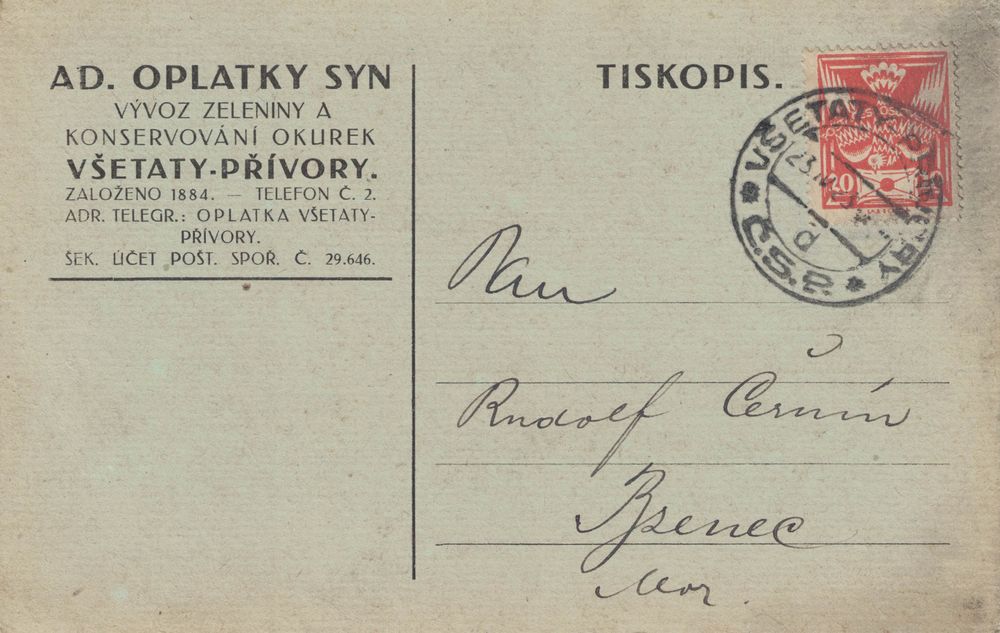 AD. OPLATKY SYN
VÝVOZ ZELENINY A
KONSERVOVÁNÍ OKUREK
VŠETATY-PŘÍVORY.
ZALOŽENO 1884. — TELEFON Č. 2.
ADR. TELEGR.: OPLATKA VŠETATY-
PŘÍVORY.
ŠEK. ÚČET POŠT. SPOŘ. Č. 29.646.
TISKOPIS.
20
VŠETATY-PŘÍVORY
Č.S.P.
d
Pan
Rudolf Černín
Bzenec
Mor.